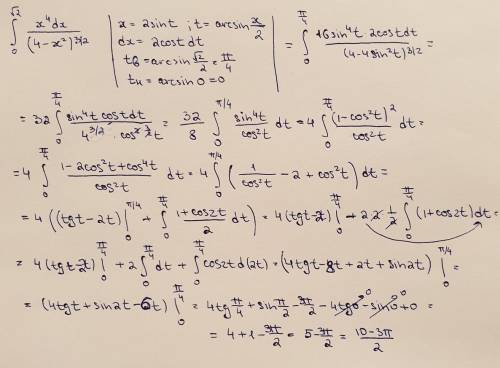 ∫₀^√2 x⁴dx / (4-x²)^3/2 | x = 2sint ; t = arcsin x/2 | = ∫₀^π/4 16sin⁴t · 2costdt / (4-4sin²t)^3/2 =
dx = 2costdt
tв = arcsin √2/2 = π/4
tн = arcsin 0 = 0
= 32 ∫₀^π/4 sin⁴t costdt / 4^3/2 · cos^2·3/2 t = 32/8 ∫₀^π/4 sin⁴t / cos²t dt = 4 ∫₀^π/4 (1-cos²t)² / cos²t dt =
= 4 ∫₀^π/4 1-2cos²t+cos⁴t / cos²t dt = 4 ∫₀^π/4 (1/cos²t - 2 + cos²t) dt =
= 4 ((tgt-2t) |₀^π/4 + ∫₀^π/4 1+cos2t / 2 dt) = 4(tgt-2t) |₀^π/4 + 2·2·1/2 ∫₀^π/4 (1+cos2t)dt =
= 4(tgt-2t) |₀^π/4 + 2 ∫₀^π/4 dt + ∫₀^π/4 cos2t d(2t) = (4tgt-8t+2t+sin2t) |₀^π/4 =
= (4tgt+sin2t-6t) |₀^π/4 = 4tg π/4 + sin π/2 - 3π/2 - 4tg0 - sin0 + 0 =
= 4+1 - 3π/2 = 5 - 3π/2 = 10-3π / 2